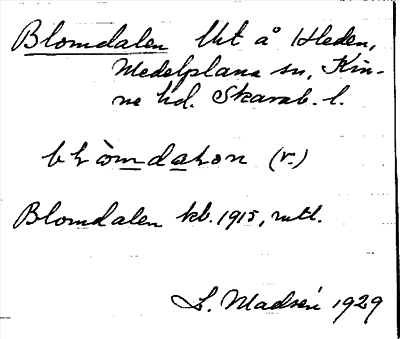 Blomdalen lht å Heden,
Medelplana sn, Kin-
ne hd. Skarab. l.
(v.)
Blomdalen kb. 1915, mtl.
L. Madsén 1929